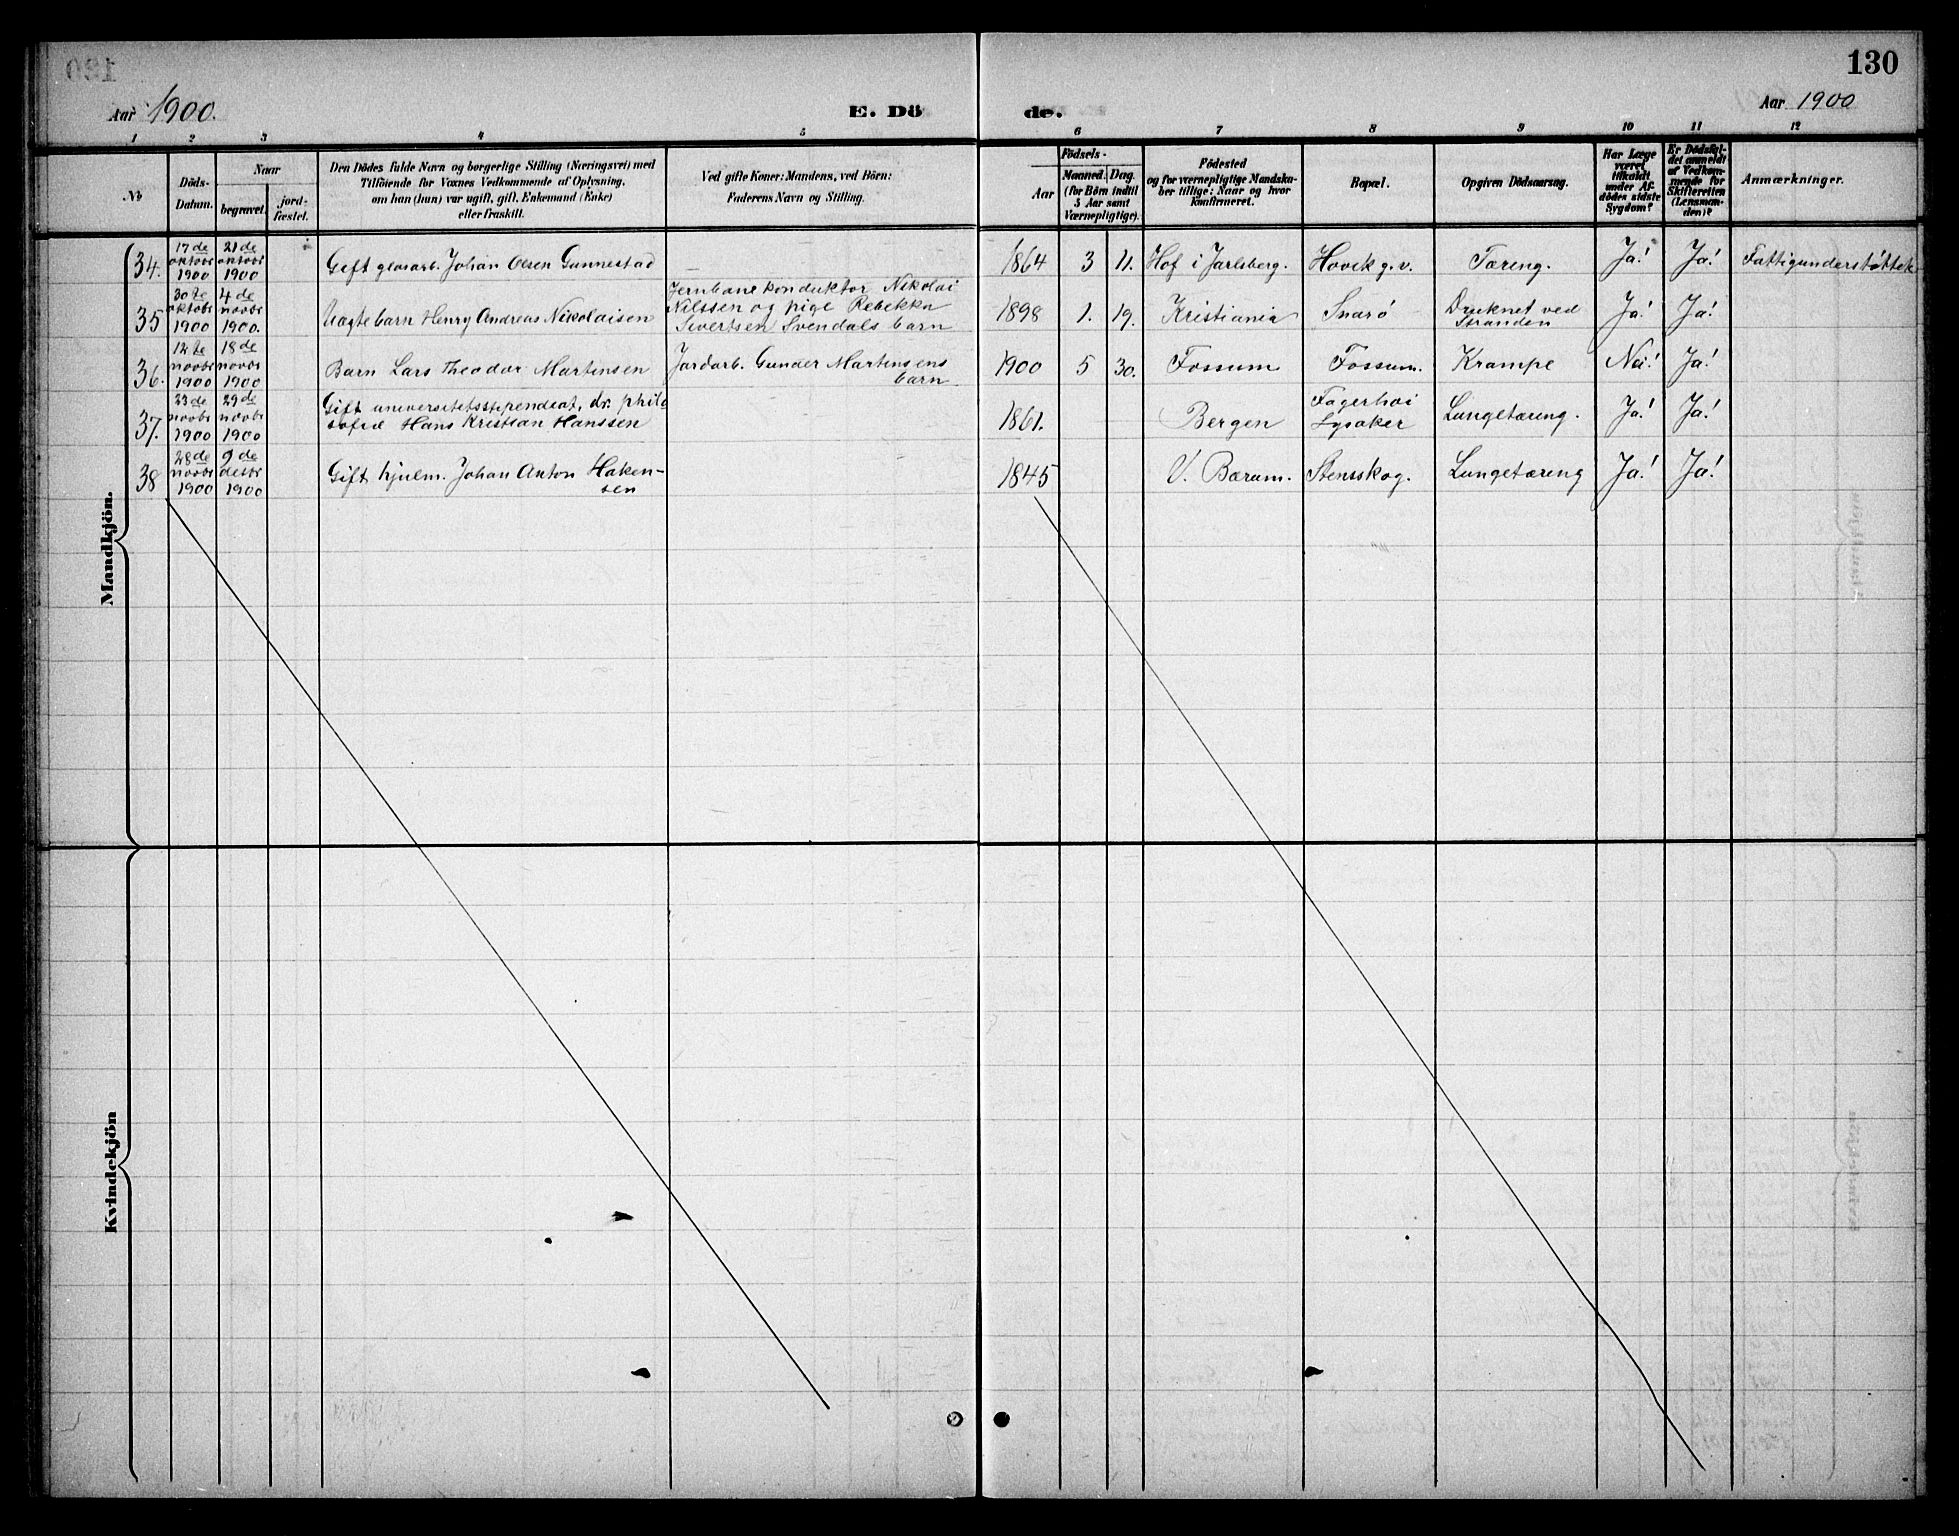 130
Aar 1900.
E. Döde.
Aar 1900
1 2 3 4 5 6 7 8 9 10 11 12
No
Döds-
Datum.
Naar
begravet.
jord-
fæstet.
Den Dödes fulde Navn og borgerlige Stilling (Næringsvei) med
Tilföiende for Voxnes Vedkommende af Oplysning,
om han (hun) var ugift, gift, Enkemand (Enke)
eller fraskilt.
Ved gifte Koner: Mandens, ved Börn:
Faderens Navn og Stilling.
Födsels-
Aar
Maaned. Dag.
(for Börn indtil
5 Aar samt
Værnepligtige).
Födested
og for værnepligtige Mandska-
ber tillige: Naar og hvor
konfirmeret.
Bopæl.
Opgiven Dödsaarsag.
Har Læge
været
tilkaldt
under Af-
dödes sidste
Sygdom?
Er Dödsfal-
det anmeldt
af Vedkom-
mende for
Skifteretten
(Lensman-
den)?
Anmærkninger.
Mandkjön.
34.
17de
oktobr
1900
21de
oktobr
1900
Gift glasarb. Johan Olsen Gunnestad
1864 3 11. Hof i Jarlsberg. Høvik g.v. Tæring. Ja! Ja! Fattigunderstøttet
35
30te
oktobr
1900
4de
novbr
1900.
Uægtebarn Henry Andreas Nikolaisen
Jernbanekonduktør Nikolai
Nilssen og pige Rebekka
Sivertsen Svendals barn
1898 1. 19. Kristiania Snarø
Druknet ved
Stranden
Ja! Ja!
36.
12te
novbr
1900
18de
novbr
1900
Barn Lars Theodor Martinsen
Jordarb. Gunder Martinsens
barn
1900 5 30. Fossum Fossum. Krampe Nei! Ja!
37.
23de
novbr
1900
29de
novbr
1900
Gift universitetsstipendiat, dr. philo
sofiæ Hans Kristian Hanssen
1861. Bergen
Fagerhøi
Lysaker
Lungetæring. Ja! Ja!
38
28de
novbr
1900
9de
desbr
1900
Gift hjulm. Johan Anton Haken-
sen
1845 V. Bærum. Stensskog. Lungetæring Ja! Ja!
Kvindekjön